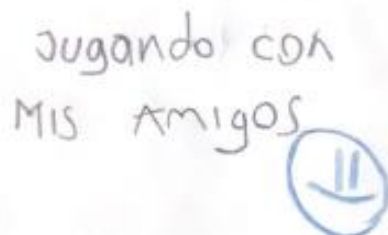 Jugando con
Mis Amigos